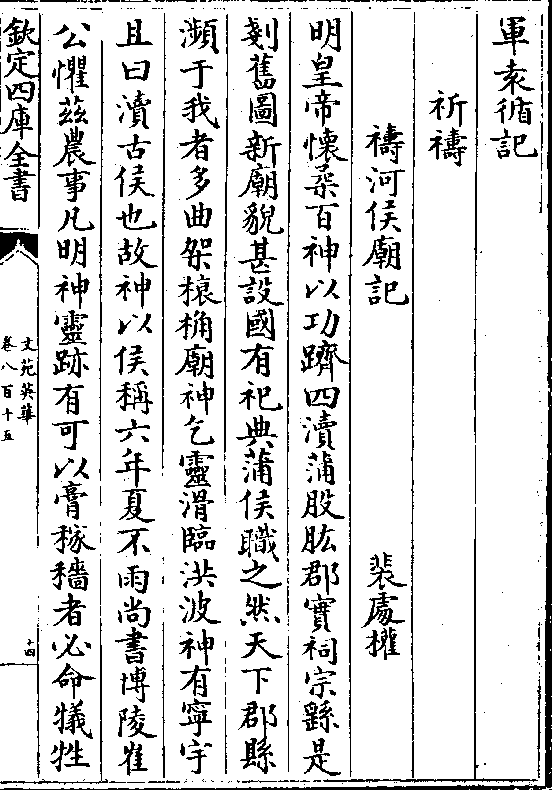 軍袁循記
祈禱
禱河侯廟記 裴處權
明皇帝懷柔百神以功躋四瀆蒲股肱郡實祠宗繇是
剗舊圖新廟貌甚設國有祀典蒲侯職之然天下郡縣
瀕于我者多曲架榱桷廟神乞靈滑臨洪波神有寧宇
且曰瀆古侯也故神以侯稱六年夏不雨尚書博陵崔
公懼茲農事凡明神靈跡有可以膏稼穡者必命犧牲
欽定四庫全書
文苑英華
卷八百十五
十四